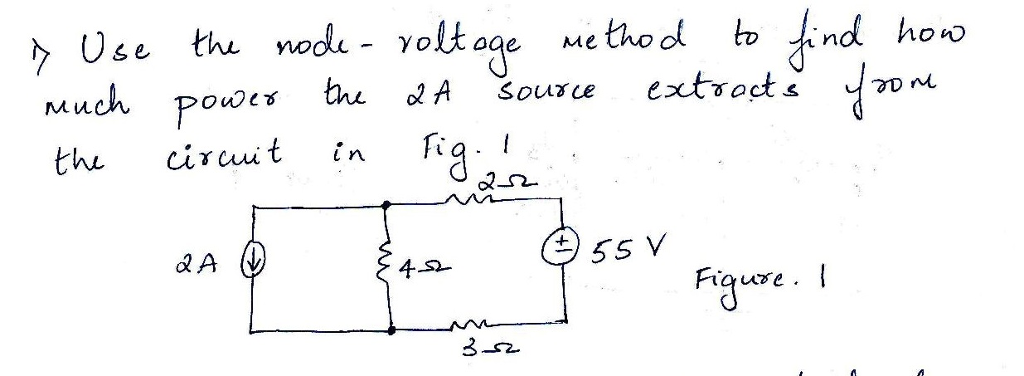 1) Use the node - voltage method to find how
much power the 2A source extracts from
the circuit in Fig. 1
2Ω
2A
4Ω
±
55 V
Figure. 1
3Ω